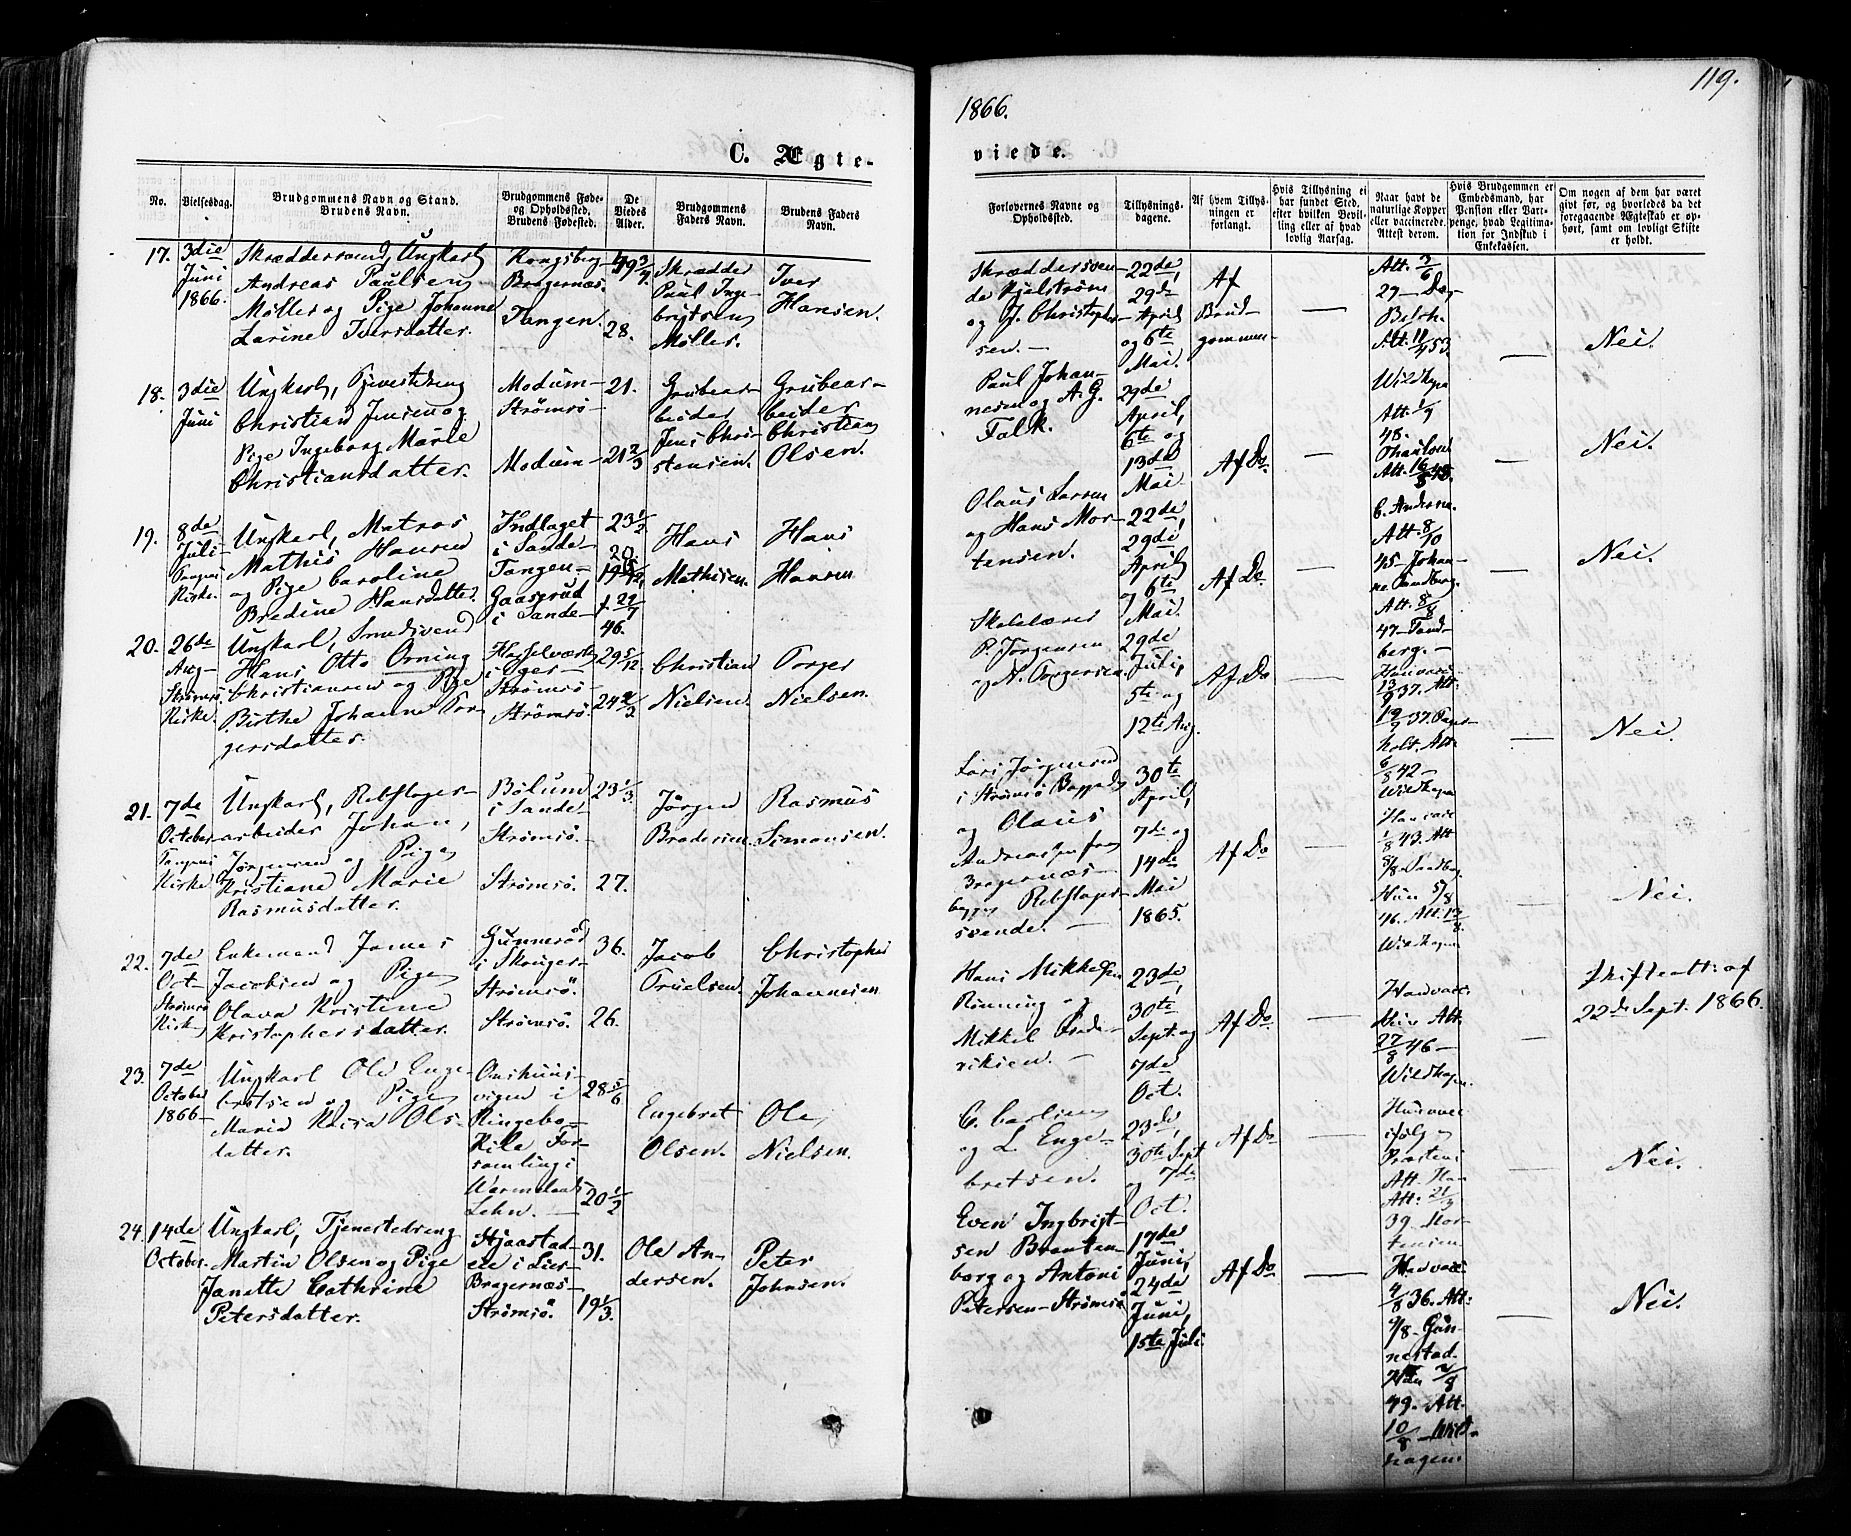 119.
1866.
C. Ægte-
viede.
No.
Vielsesdag.
Brudgommens Navn og Stand.
Brudens Navn.
Brudgommens Føde-
og Opholdssted.
Brudens Fødested.
De
Viedes
Alder.
Brudgommens
Faders Navn.
Brudens Faders
Navn.
Forlovernes Navne og
Opholdssted.
Tillysnings-
dagene.
Af hvem Tillys-
ningen er
forlangt.
Hvis Tillysning ei
har fundet Sted,
efter hvilken Bevil-
ling eller af hvad
lovlig Aarsag.
Naar havt de
naturlige Kopper
eller vaccinerede.
Attest derom.
Hvis Brudgommen er
Embedsmand, har
Pension eller Vart-
penge, hvad Legitima-
tion for Indskud i
Enkekassen.
Om nogen af dem har været
gift før, og hvorledes da det
foregaaende Ægteskab er op-
hørt, samt om lovligt Skifte
er holdt.
17.
3die
Juni
1866.
Skræddersvend, Ungkarl
Andreas Paulsen
Møller og Pige Johanne
Larine Iversdatter.
Kongsberg
Bragernæs.
Tangen.
28.
Skrædder
Paul Inge-
brigtsen
Møller.
Iver
Hansen.
Skræddersven-
de Hjelstrøm
og J. Christopher-
sen.
22de,
29de
April
og 6te
Mai.
Af
Brud-
gommen
Att. 3/6
29 - Dag-
Att. 11/4 53.
Nei.
18.
3die
Juni
Ungkarl, Tjenestdreng
Christian Jensen og
Pige Ingeborg Marie
Christiansdatter.
Modum-
Strømsø-
Modum-
21.
21 2/3
Grubear-
beider
Jens Chri-
stensen.
Grubear-
beider
Christian
Olsen.
Paul Johan-
nesen og A. G.
Falk.
29de
April,
6te og
13de
Mai.
Af Do.
Wildhagen
48.
Nei.
19.
8de
Juli-
Tangens
Kirke.
Ungkarl, Matros
Mathis Hansen
og Pige Caroline
Bredine Hansdatter.
Indlaget
i Sande-
Tangen-
Gaaserud
i Sande-
23 1/2
Hans
Mathisen.
Hans
Hansen
Olaus Larsen
og Hans Mor-
tensen.
22de,
29de
April
og 6te
Mai.
Af Do
Att. 8/10
45 Johan-
Att. 8/8
47- Tand-
berg.-
Nei.
20.
26de
Aug-
Strømsø
Kirke.
Ungkarl, Smedsvend
Hans Otto Orning
Christiansen og Pige
Birthe Johanne Tor-
gersdatter.
Hasselværk
i Eger-
Strømsø-
Strømsø.
29 5/12
Christian
Nielsen.
Torger
Nielsen.
P. Jørgensen
og N. Torgersen
29de
Juli,
5te og
12te Aug.
Af Do
37. Att:
holt. Att:
6/8 42-
Wildhagen
Nei.
21.
7de
October
Tangens
Kirke
Ungkarl, Rebslager-
arbeider Johan
Jørgensen og Pige
Kristiane Marie
Rasmusdatter.
Bölum
i Sande-
Strømsø.
Strømsø.
23 1/3
27.
Jørgen
Brodersen.
Rasmus
Simonsen.
Lars Jørgensen
i Strømsø
og Olaus
Andreassen fra
Bragernæs-
Rebslager-
svende.
30te
April,
7de og
14de
Mai
1865.
Af Do
1/8 43. Att
Hun 5/8
46. Att. 12/8.
Wildhagen
Nei.
22.
7de
Oct-
Strømsø
Kirk-
Enkemand James
Jacobsen og Pige
Olava Kristine
Kristophersdatter.
Gunnerød
i Skouger-
Strømsø.
Strømsø.
36.
26.
Jacob
Truelsen.
Christopher
Johannesen
Hans Mikkelsen
Rönning og
Mikkel Frede-
riksen.
23de,
30te
Sept og
7de
Oct.
Af Do
Att.
27/8 46-
Wildhagen.
Skifteatt: af
22de Sept. 1866.
23.
7de
October
1866-
Ungkarl Ole Enge-
bretsen og Pige
Maria Kaisa Ols-
datter.
vigen i
Ringebo-
Kila For-
samling i
Wermelands
Lehn.
28 5/6
20 1/2
Engebret
Olsen.
Ole
Nielsen.
og L. Enge-
bretsen.
23de,
30te Sept
og 7de
Oct.
Af Do
ifølge
Præstens
Att. Han
Att: 21/3
39. Mor-
tensen
Nei.
24.
14de
October.
Ungkarl, Tjenestedreng
Martin Olsen og Pige
Janette Cathrine
Petersdatter.
Hjaastad-
eie i Lier-
Bragernæs-
Strømsø.
31.
19 1/3.
Ole An-
dersen.
Peter
Johnsen.
Even Ingbrigt-
sen Branten-
borg og Antoni
Petersen-Strømsø
17de
Juni,
24de
Juni,
1ste Juli
Af Do
4/8 36. Att:
9/8- Gun-
nestad.
49. Att.
10/8 - Wild-
hagen.
Nei.